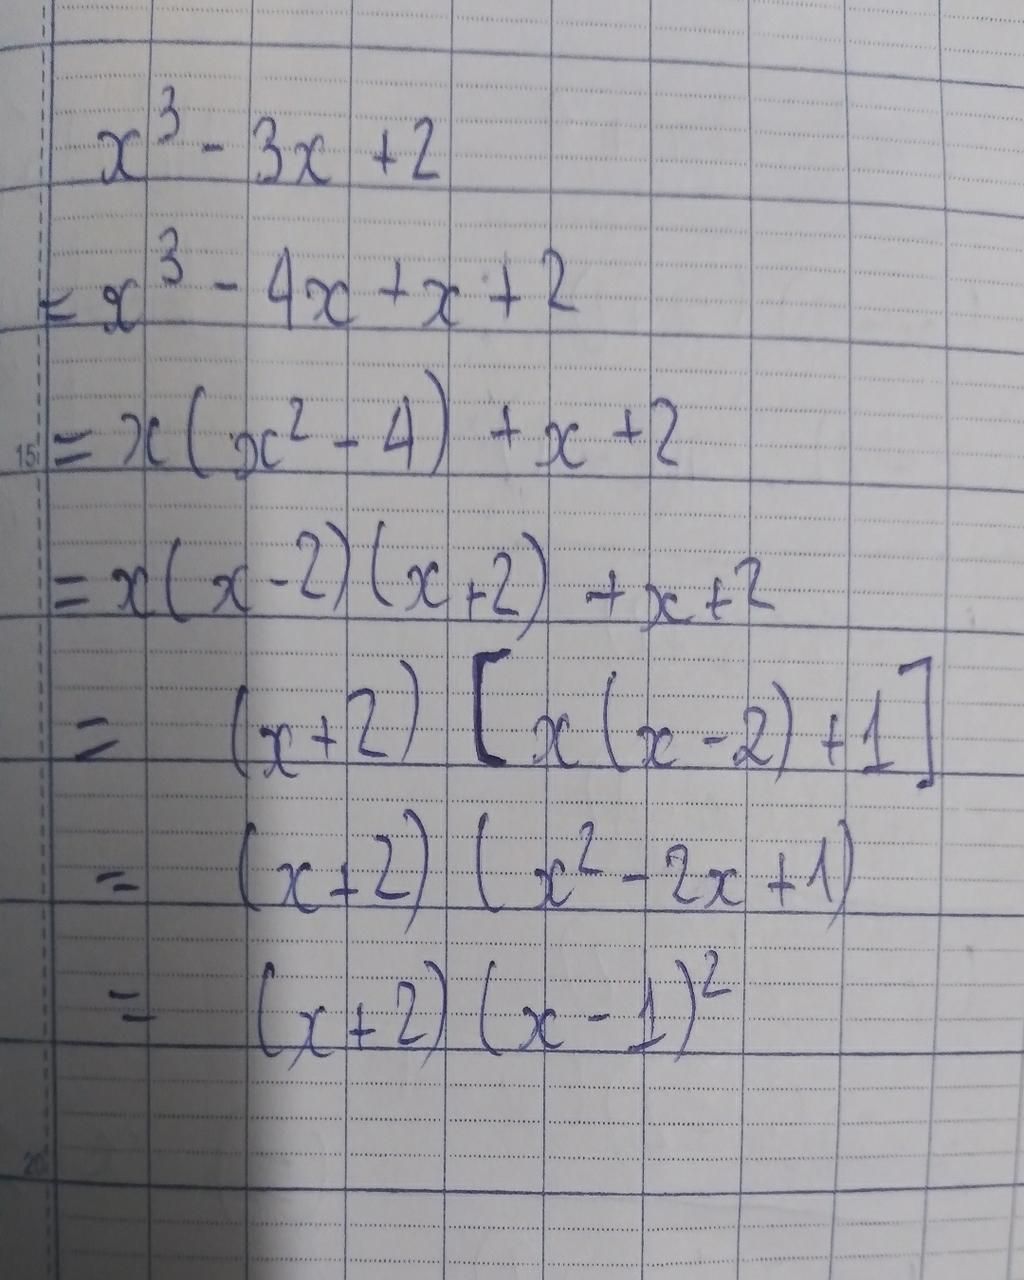 x³ - 3x + 2
= x³ - 4x + x + 2
= x(x² - 4) + x + 2
15
= x(x - 2)(x + 2) + x + 2
= (x + 2) [x(x - 2) + 1]
= (x + 2) (x² - 2x + 1)
= (x + 2) (x - 1)²
20